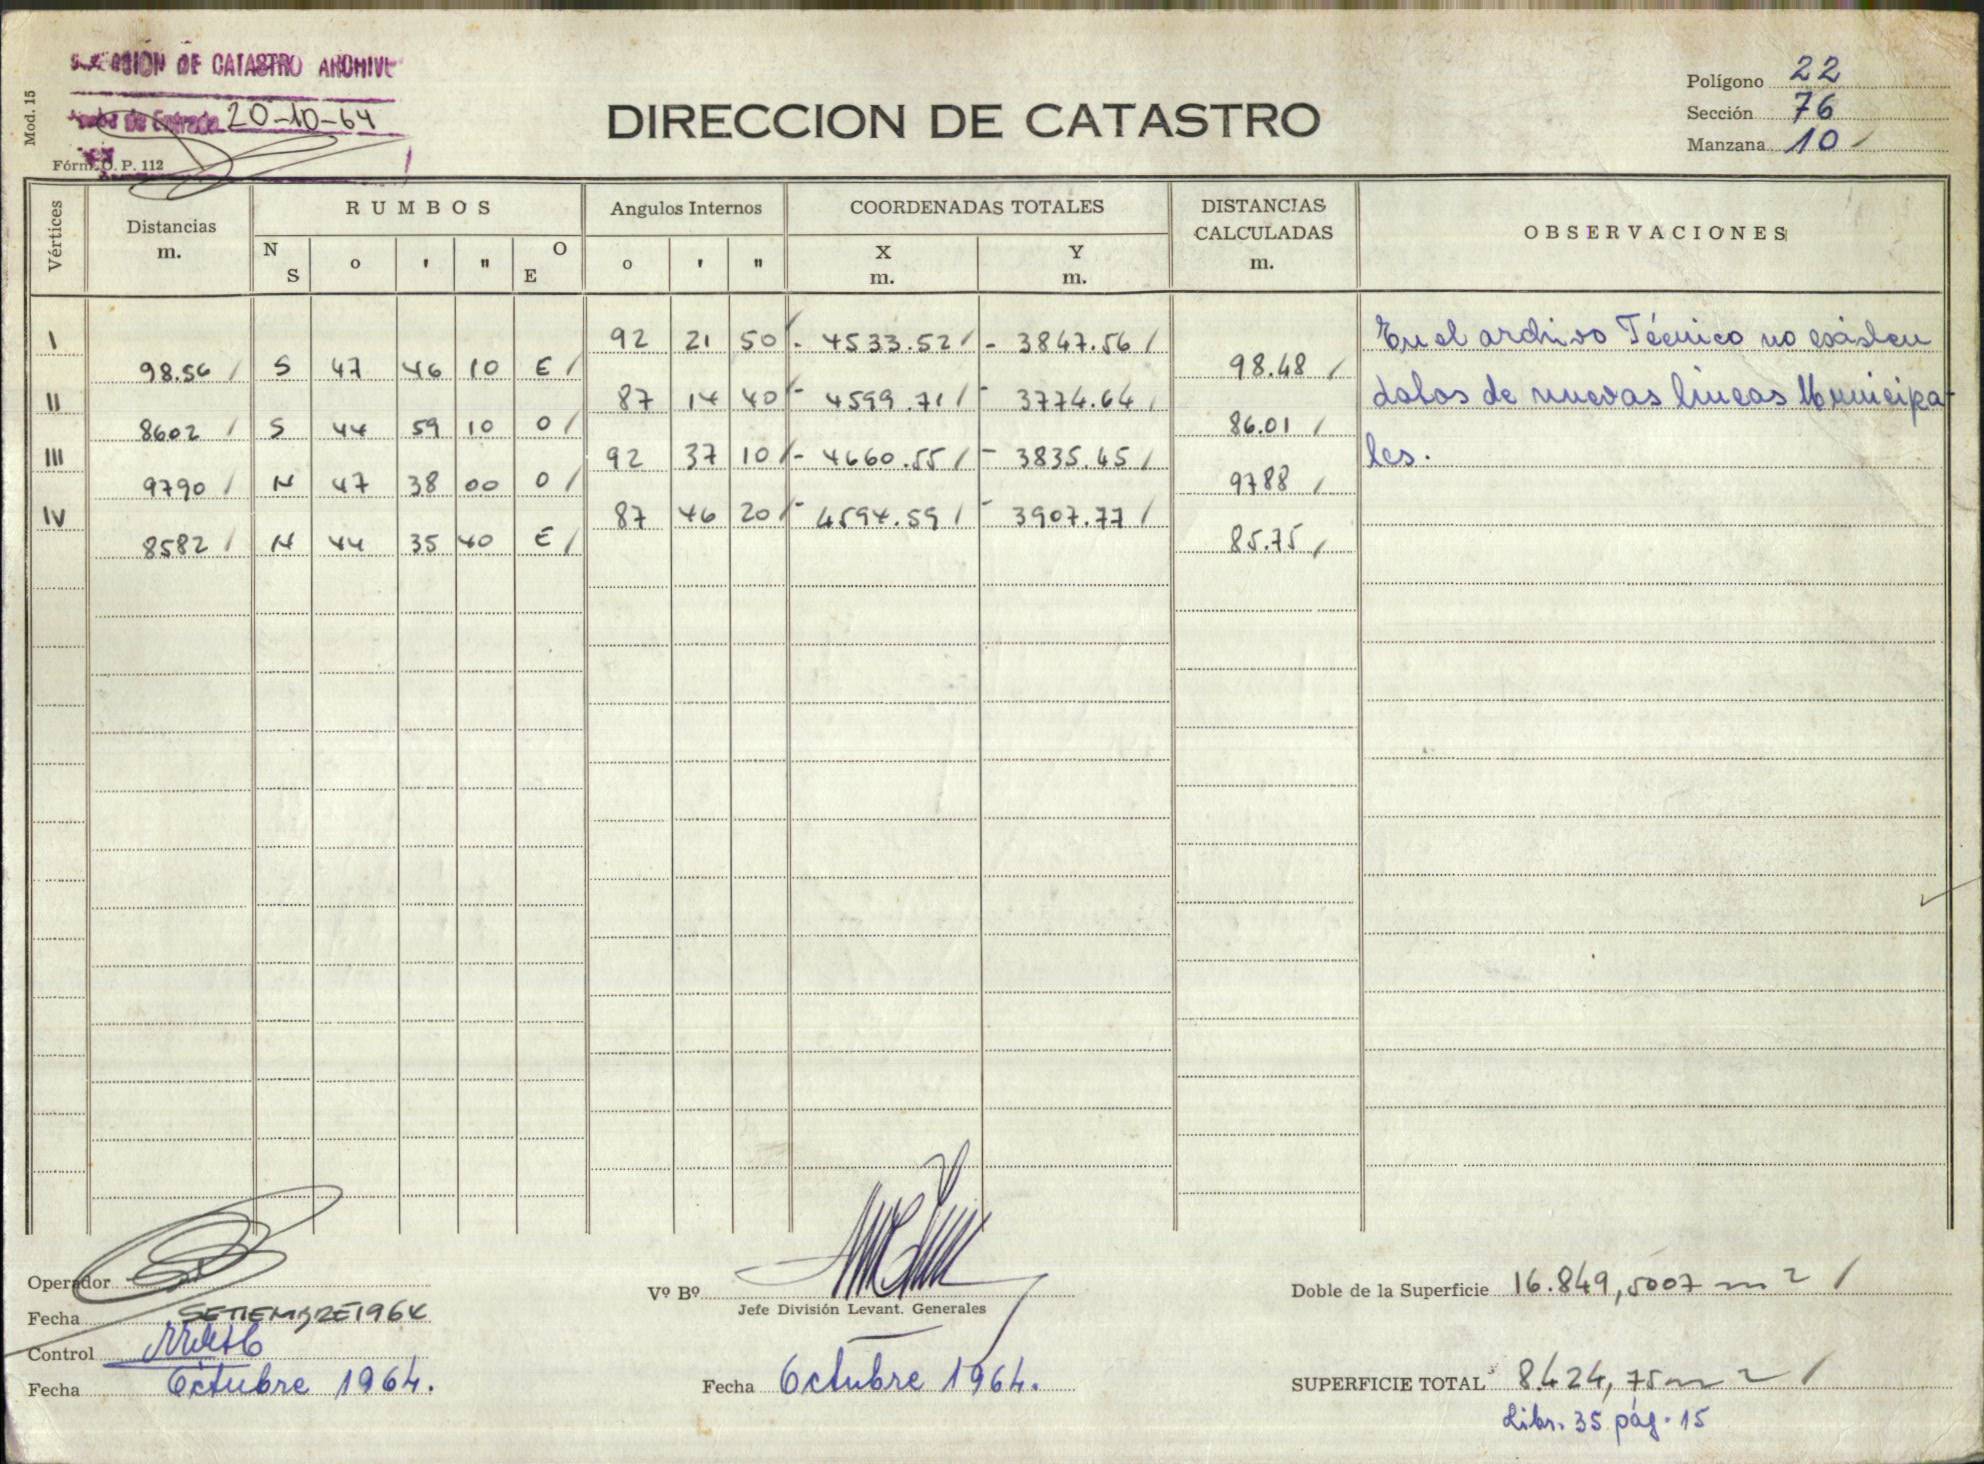 SECCION DE CATASTRO ARCHIVO
Fecha de Entrada 20-10-64
Mod. 15
Fórm. O. P. 112
DIRECCION DE CATASTRO
Polígono 22
Sección 76
Manzana 10
Vértices Distancias m. RUMBOS Angulos Internos COORDENADAS TOTALES DISTANCIAS CALCULADAS m. OBSERVACIONES
N S o ' " O E o ' " X m. Y m.
I 92 21 50 - 4533.52 - 3847.56 En el archivo Técnico no existen
98.56 S 47 46 10 E 98.48
II 87 14 40 - 4599.71 - 3774.64 datos de nuevas lineas Municipa-
8602 S 44 59 10 O 86.01
III 92 37 10 - 4660.55 - 3835.45 les.
9790 N 47 38 00 O 9788
IV 87 46 20 - 4594.59 - 3907.77
8582 N 44 35 40 E 85.75
Operador
Fecha SETIEMBRE 1964
Control
Fecha Octubre 1964.
Vº Bº
Jefe División Levant. Generales
Fecha Octubre 1964.
Doble de la Superficie 16.849,5007 m2
SUPERFICIE TOTAL 8.424,75 m2
Libr. 35 pág. 15